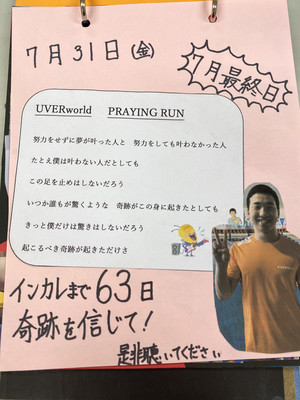 7月31日(金)
7月最終日
UVERworld PRAYING RUN
努力をせずに夢が叶った人と 努力をしても叶わなかった人
たとえ僕は叶わない人だとしても
この足を止めはしないだろう
いつか誰もが驚くような 奇跡がこの身に起きたとしても
きっと僕だけは驚きはしないだろう
起こるべき奇跡が起きただけさ
インカレまで63日
奇跡を信じて!
是非聴いてください